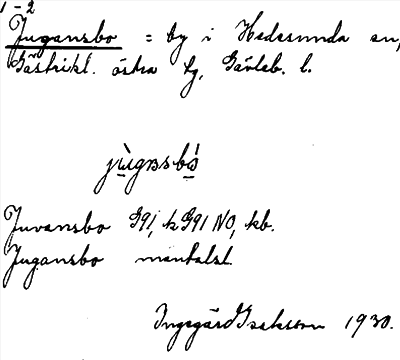 1-2
Jugansbo = by i Hedesunda sn,
Gästrikl. östra tg, Gävleb. l.
jùgasbó
Juvansbo G91, k G91 NO, kb.
Jugansbo mantalsl.
Ingegärd Isaksson 1930.